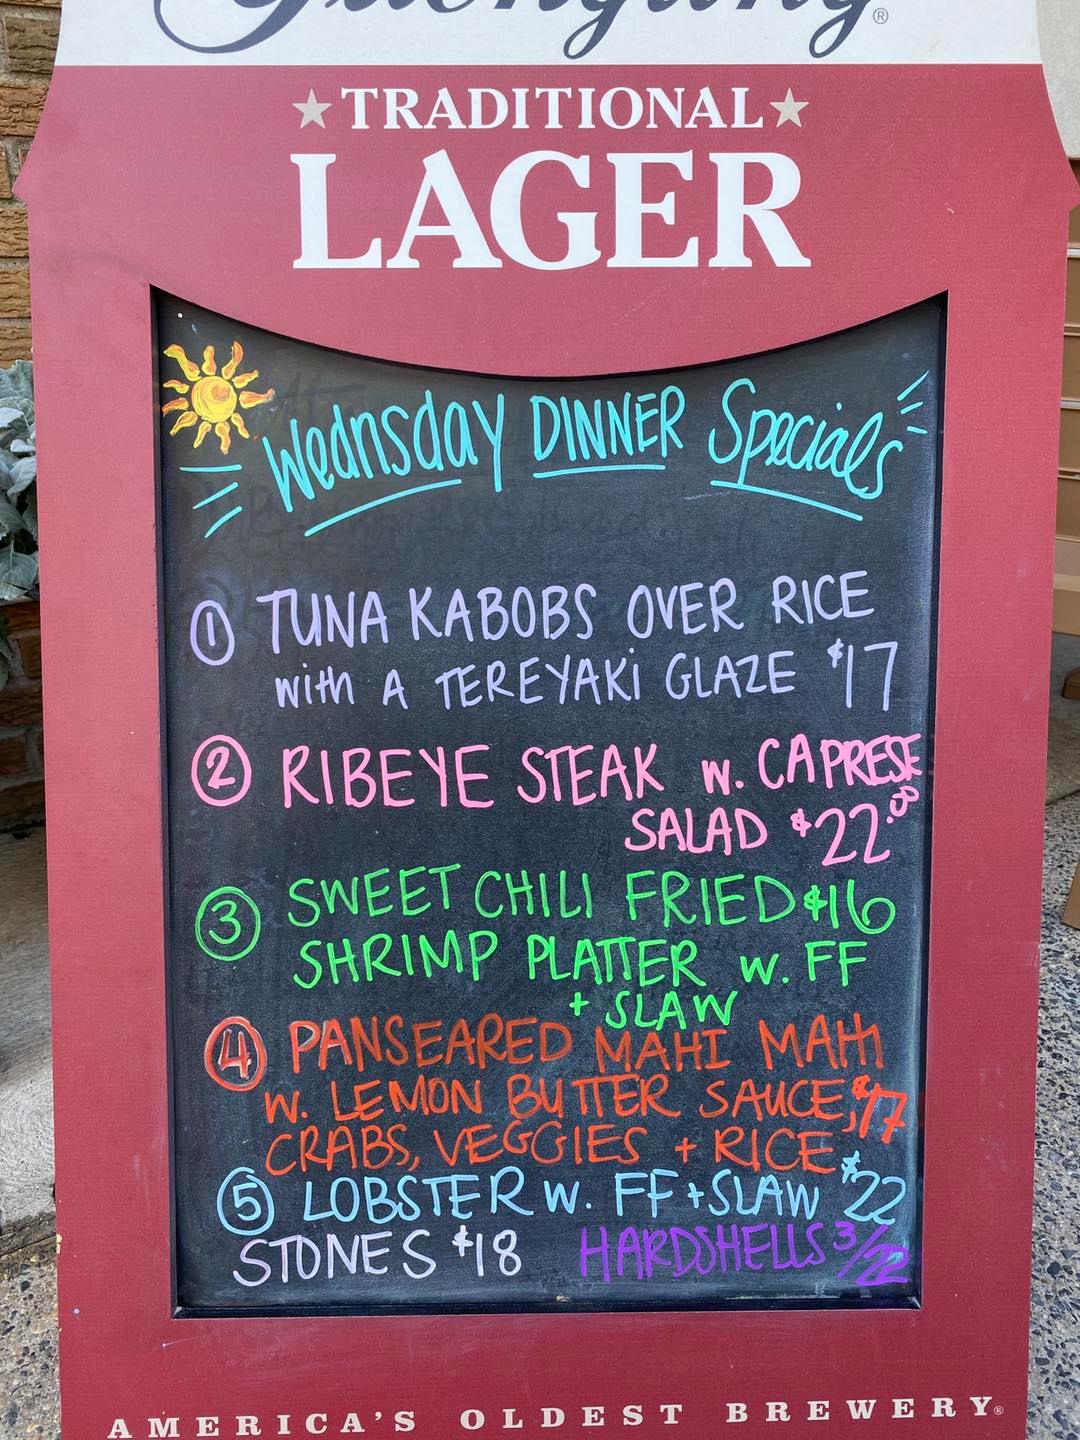 Yuengling®
TRADITIONAL
LAGER
Wednsday DINNER Specials
① TUNA KABOBS OVER RICE
with A TEREYAKi GLAZE $17
② RIBEYE STEAK w. CAPRESE
SALAD $22.00
③ SWEET CHILI FRIED $16
SHRIMP PLATTER w. FF
+ SLAW
④ PANSEARED MAHI MAHI
W. LEMON BUTTER SAUCE, $17
CRABS, VEGGIES + RICE
⑤ LOBSTER W. FF + SLAW $22
STONES $18 HARDSHELLS 3/22
AMERICA'S OLDEST BREWERY®